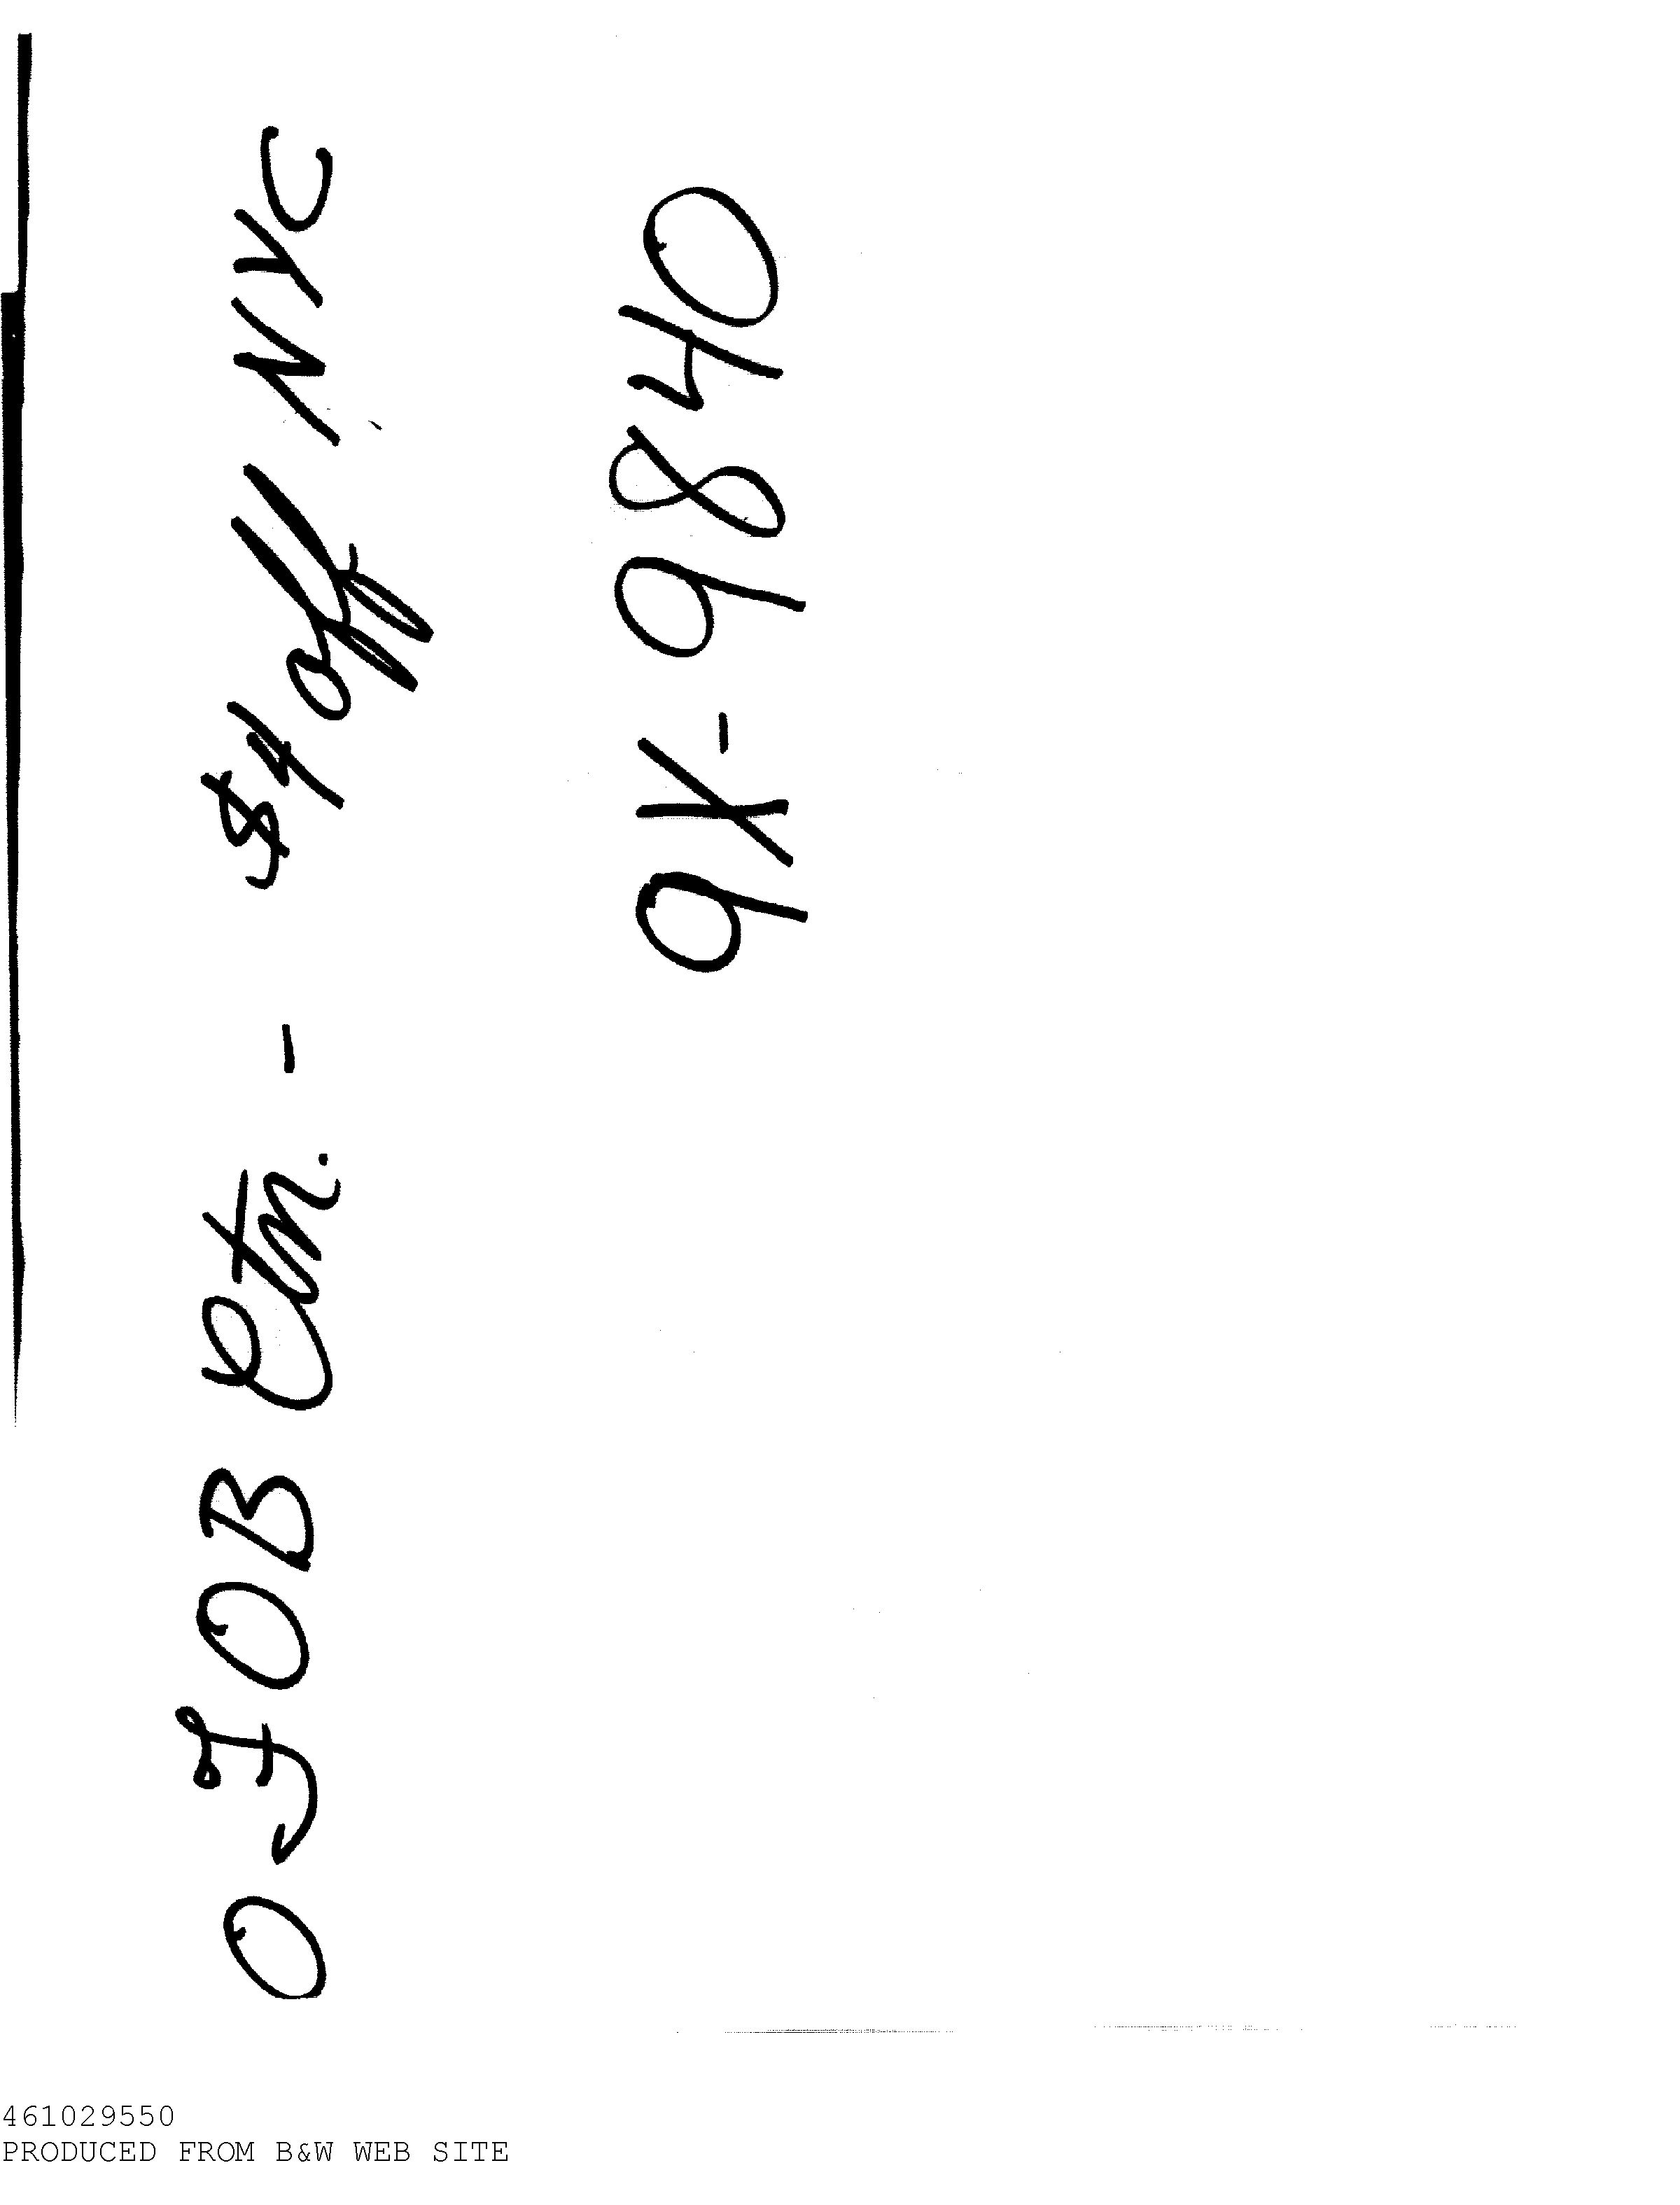 O FOB Ctn. - $4 off NYC
9X-9840
461029550
PRODUCED FROM B&W WEB SITE